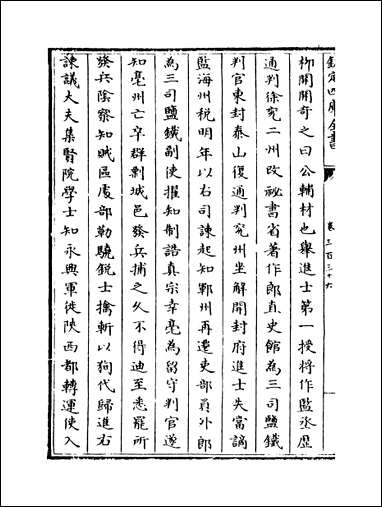 欽定四庫全書
卷三百三十六
柳開開奇之曰公輔材也舉進士第一授將作監丞歷
通判徐兗二州改祕書省著作郎直史館為三司鹽鐵
判官東封泰山復通判兗州坐解開封府進士失當謫
監海州稅明年以右司諫起知鄆州再遷吏部員外郎
為三司鹽鐵副使擢知制誥真宗幸亳為留守判官遂
知亳州亡卒群剽城邑發兵捕之久不得迪至悉罷所
發兵陰察知賊區處部勒驍銳士擒斬以狥代歸進右
諫議大夫集賢院學士知永興軍徙陝西都轉運使入